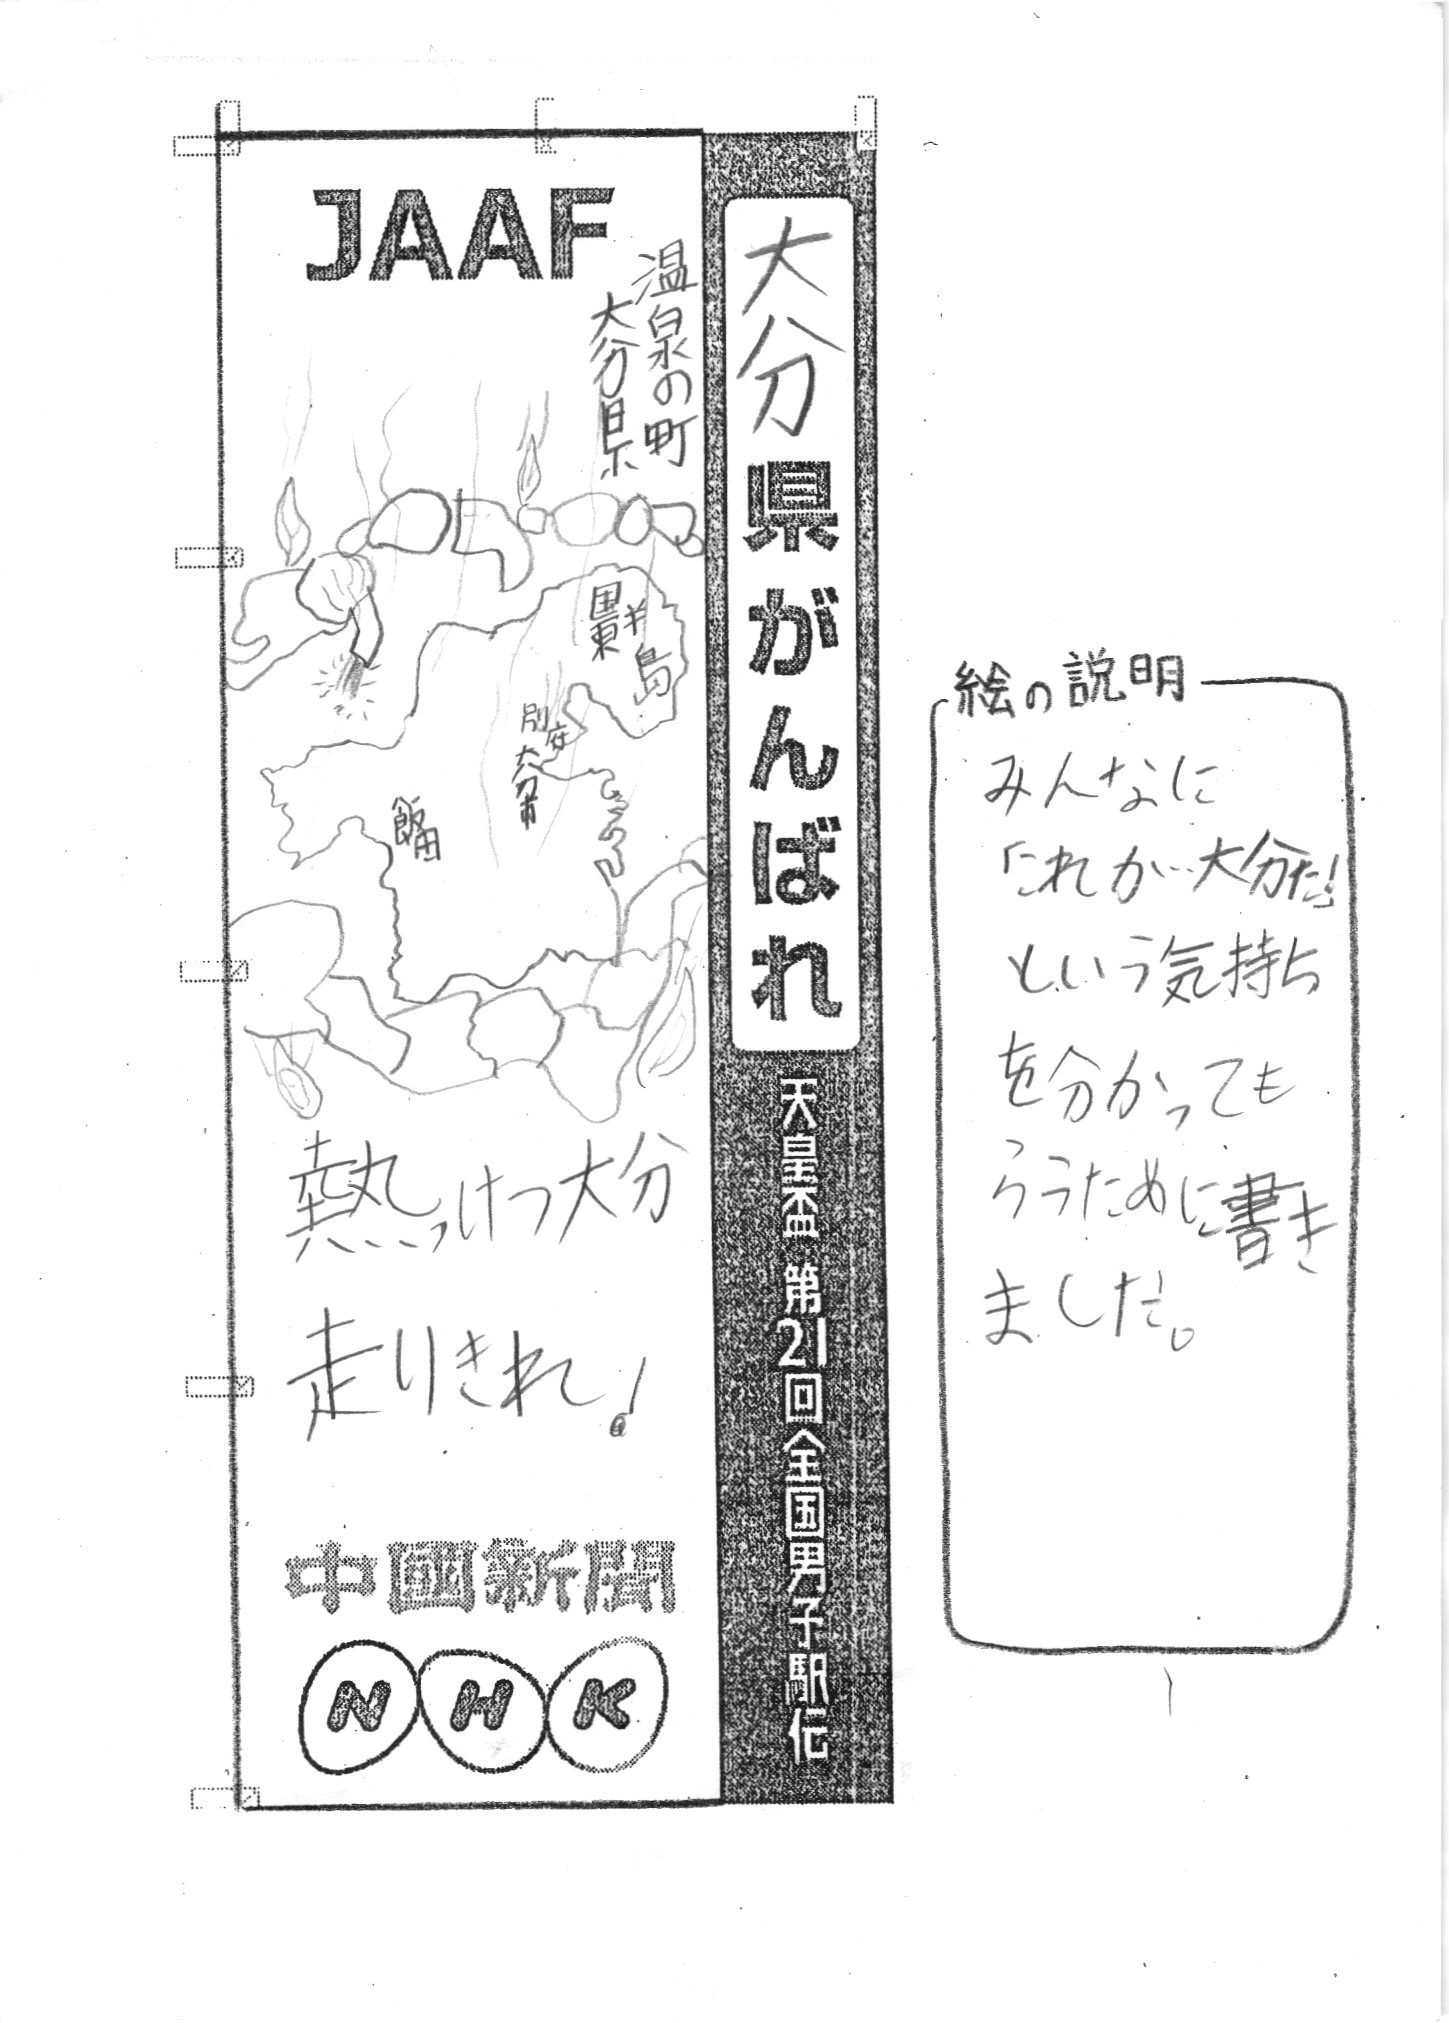 JAAF
温泉の町
大分県
大分県がんばれ
天皇盃 第21回全国男子駅伝
国東
半島
別府
大分市
飯田
熱っけつ大分
走りきれ!
中國新聞
NHK
絵の説明
みんなに
「これが大分だ!」
という気持ち
を分かっても
らうために書き
ました。